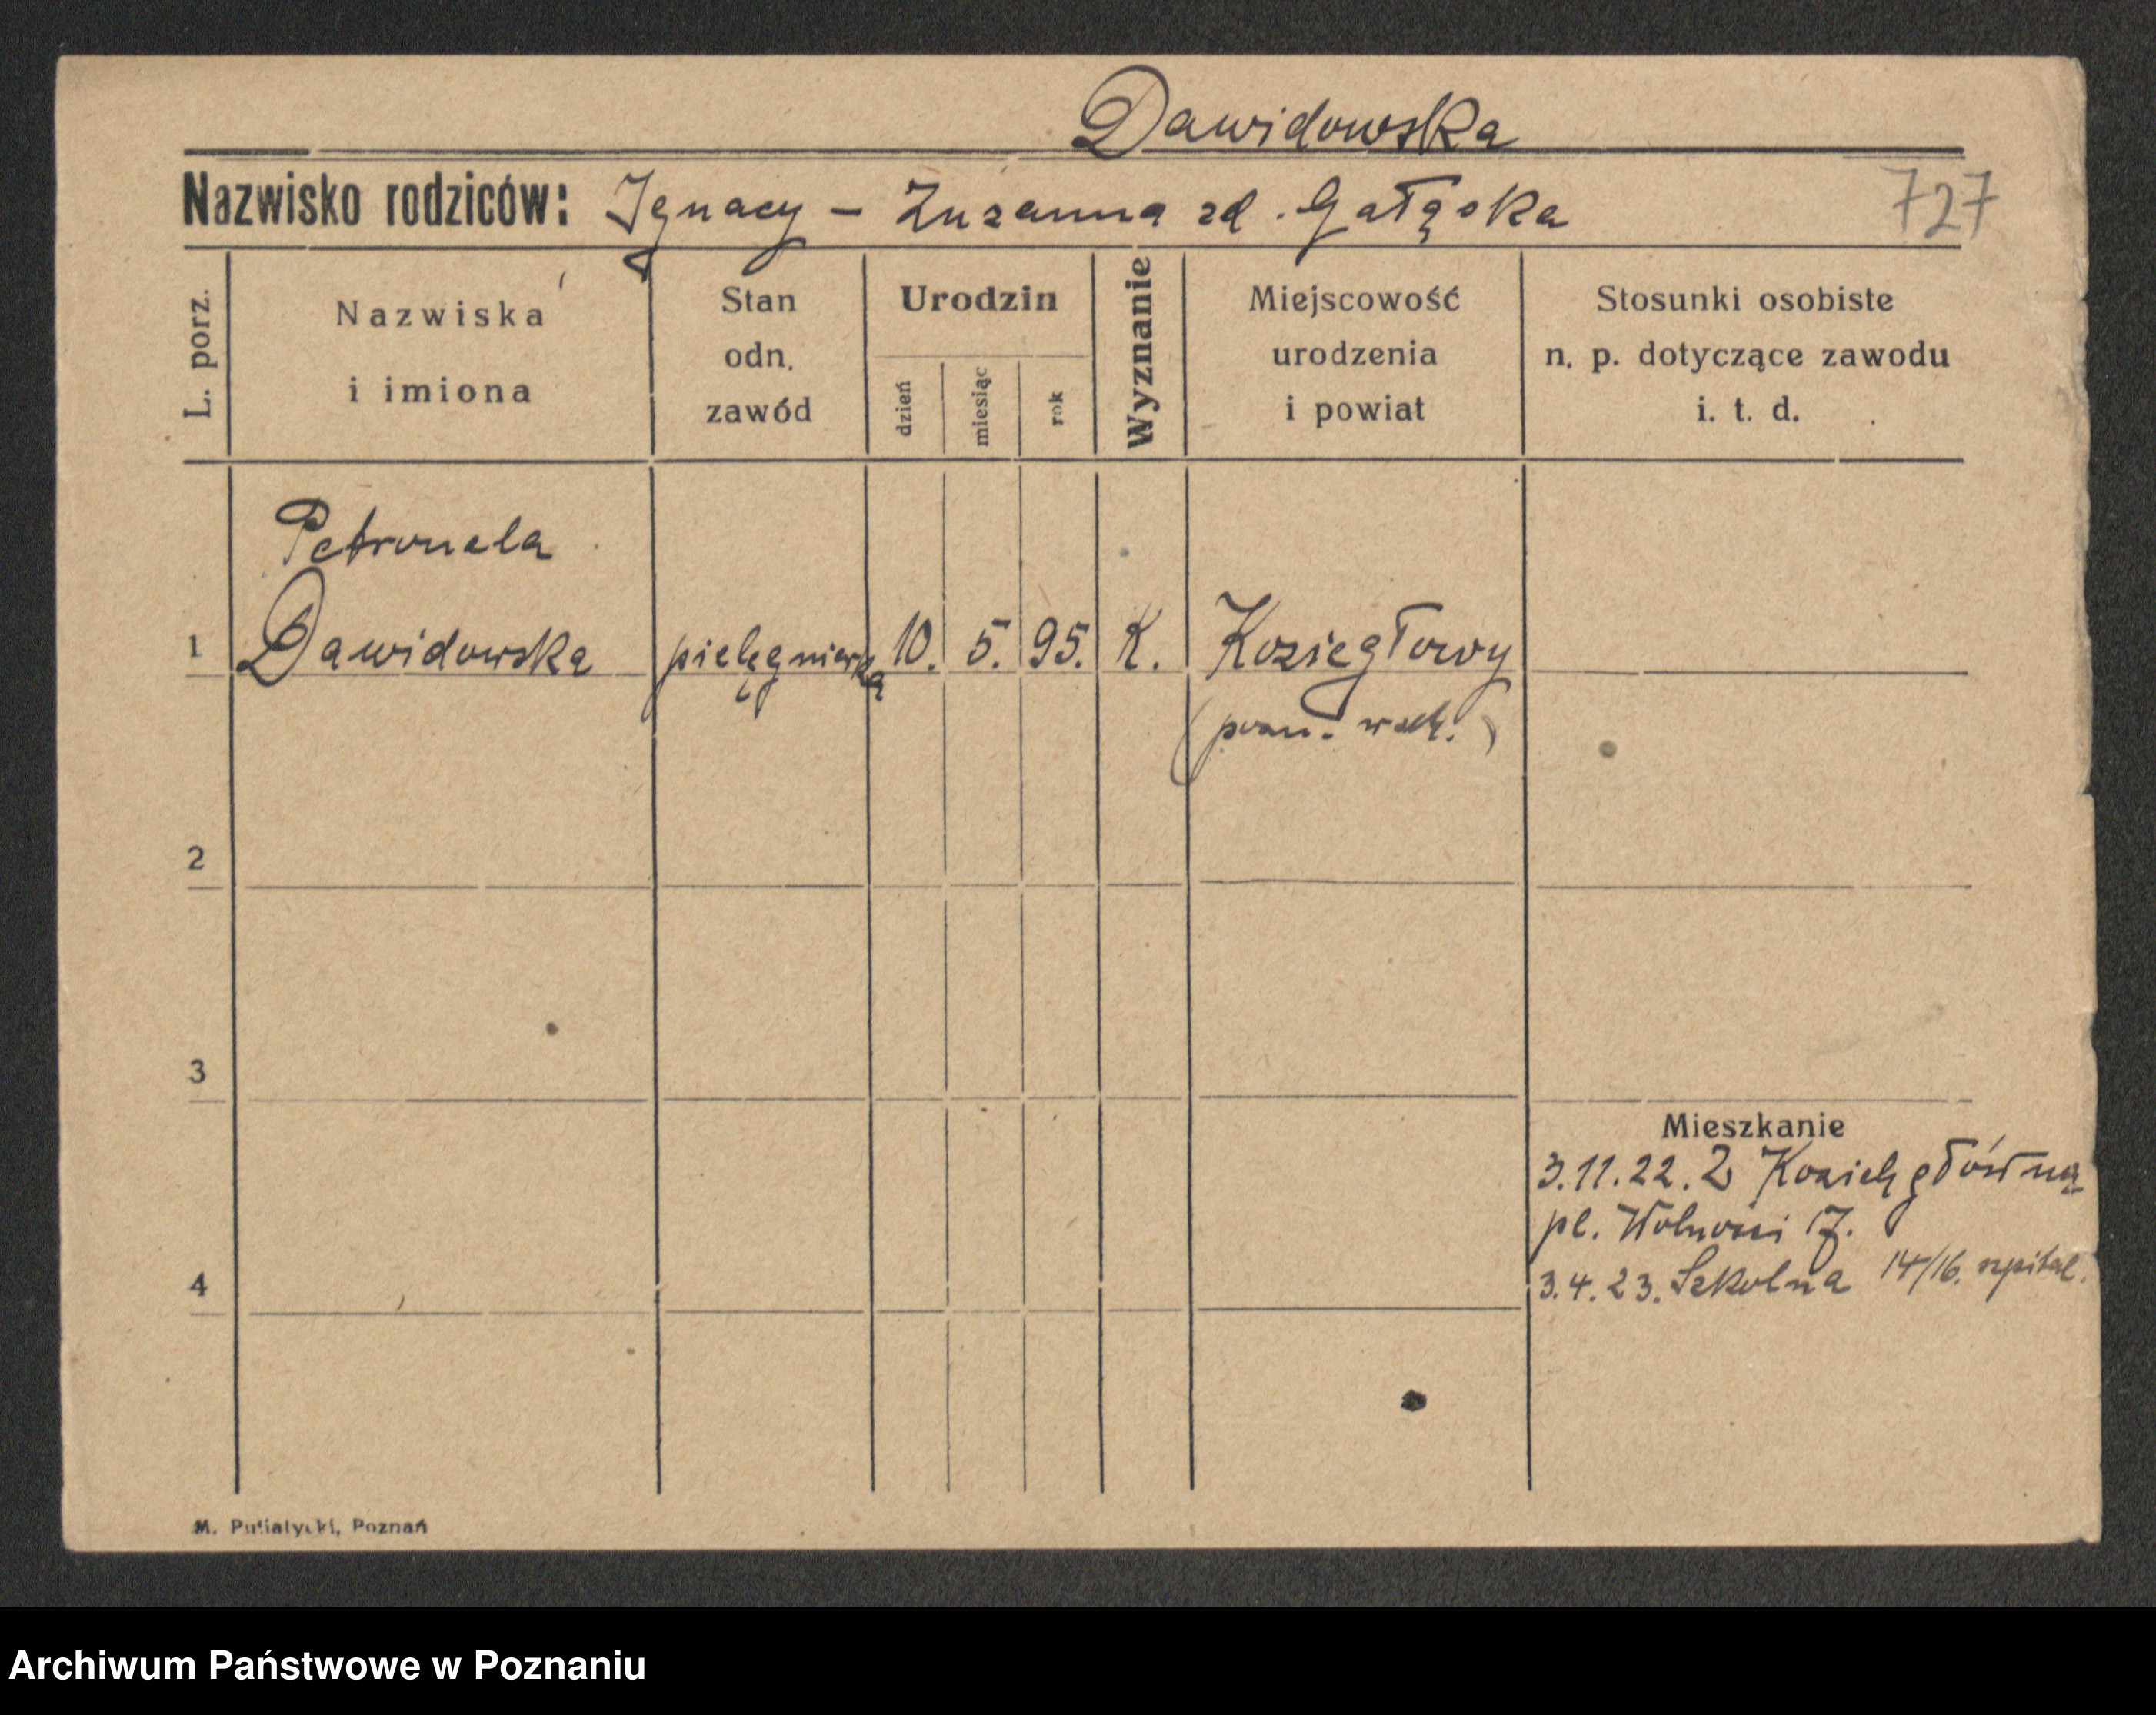 Dawidowska
Nazwisko rodziców: Ignacy – Zuzanna zd. Gałąska
727
L. porz.
Nazwiska i imiona
Stan odn. zawód
Urodzin
dzień miesiąc rok
Wyznanie
Miejscowość urodzenia i powiat
Stosunki osobiste n. p. dotyczące zawodu i. t. d.
Petronela
1 Dawidowska pielęgniarka 10. 5. 95. K. Koziegłowy
(pozn. wsch.)
2
3
Mieszkanie
3.11.22. Z
pl. Wolności 17.
4
3.4.23. Szkolna 14/16. szpital.
M. Putiatycki, Poznań
Archiwum Państwowe w Poznaniu